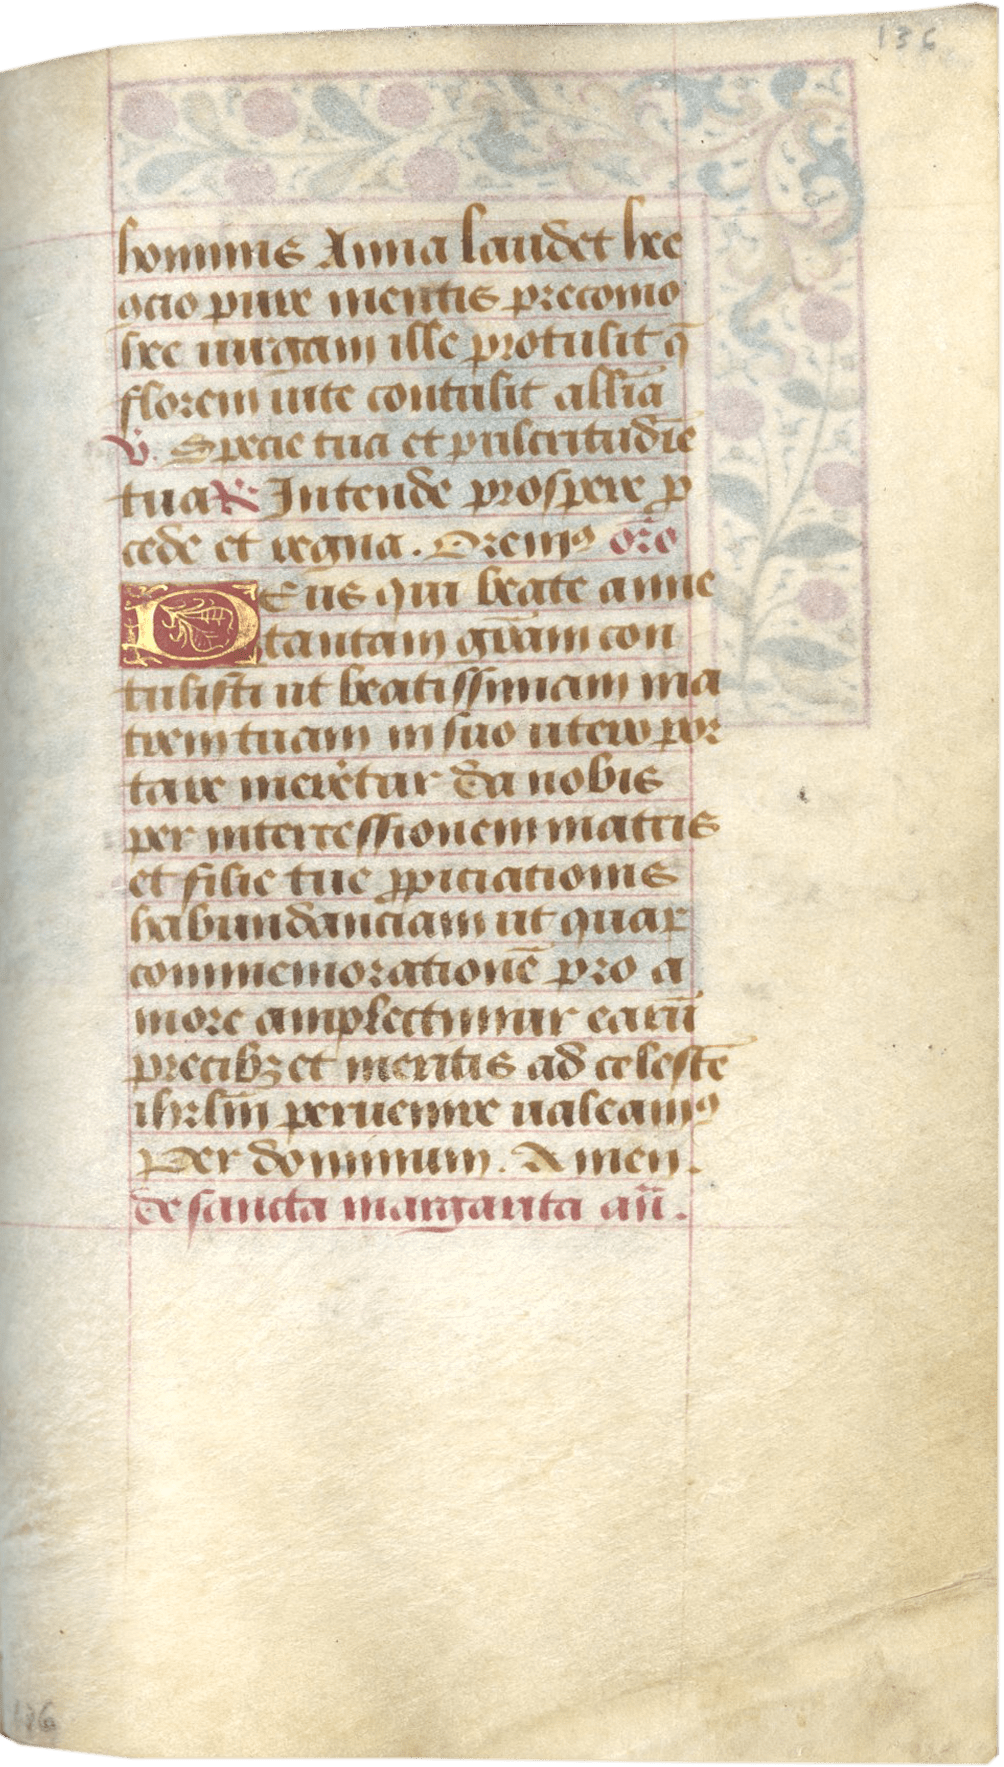 136
hominis Anna laudet hec
ocio pure mentis preconio
hec uirgam ille protulit q̄
florem uite contulit alľia
v̄. Specie tua et pulcritudīe
tua R̄ Intende prospere p
cede et regna. Oremꝰ oro
Deus qui beate anne
tantam gr̄am con
tulisti ut beatissimam ma
trem tuam in suo utero por
tare meretur da nobis
per intercessionem matris
et filie tue ꝓpiciationis
habundanciam ut quar
commemorationē pro a
more amplectimur earū
precibꝫ et meritis ad celestē
ihrlm̄ peruenire ualeamꝰ
Per dominum. Amen.
de sancta margarita añ.
136